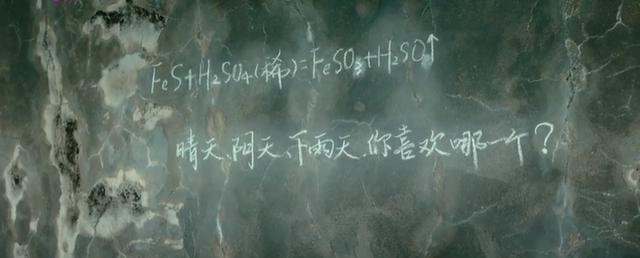 FeS+H₂SO₄(稀)=FeSO₃+H₂SO↑
晴天、阴天、下雨天、你喜欢哪一个？